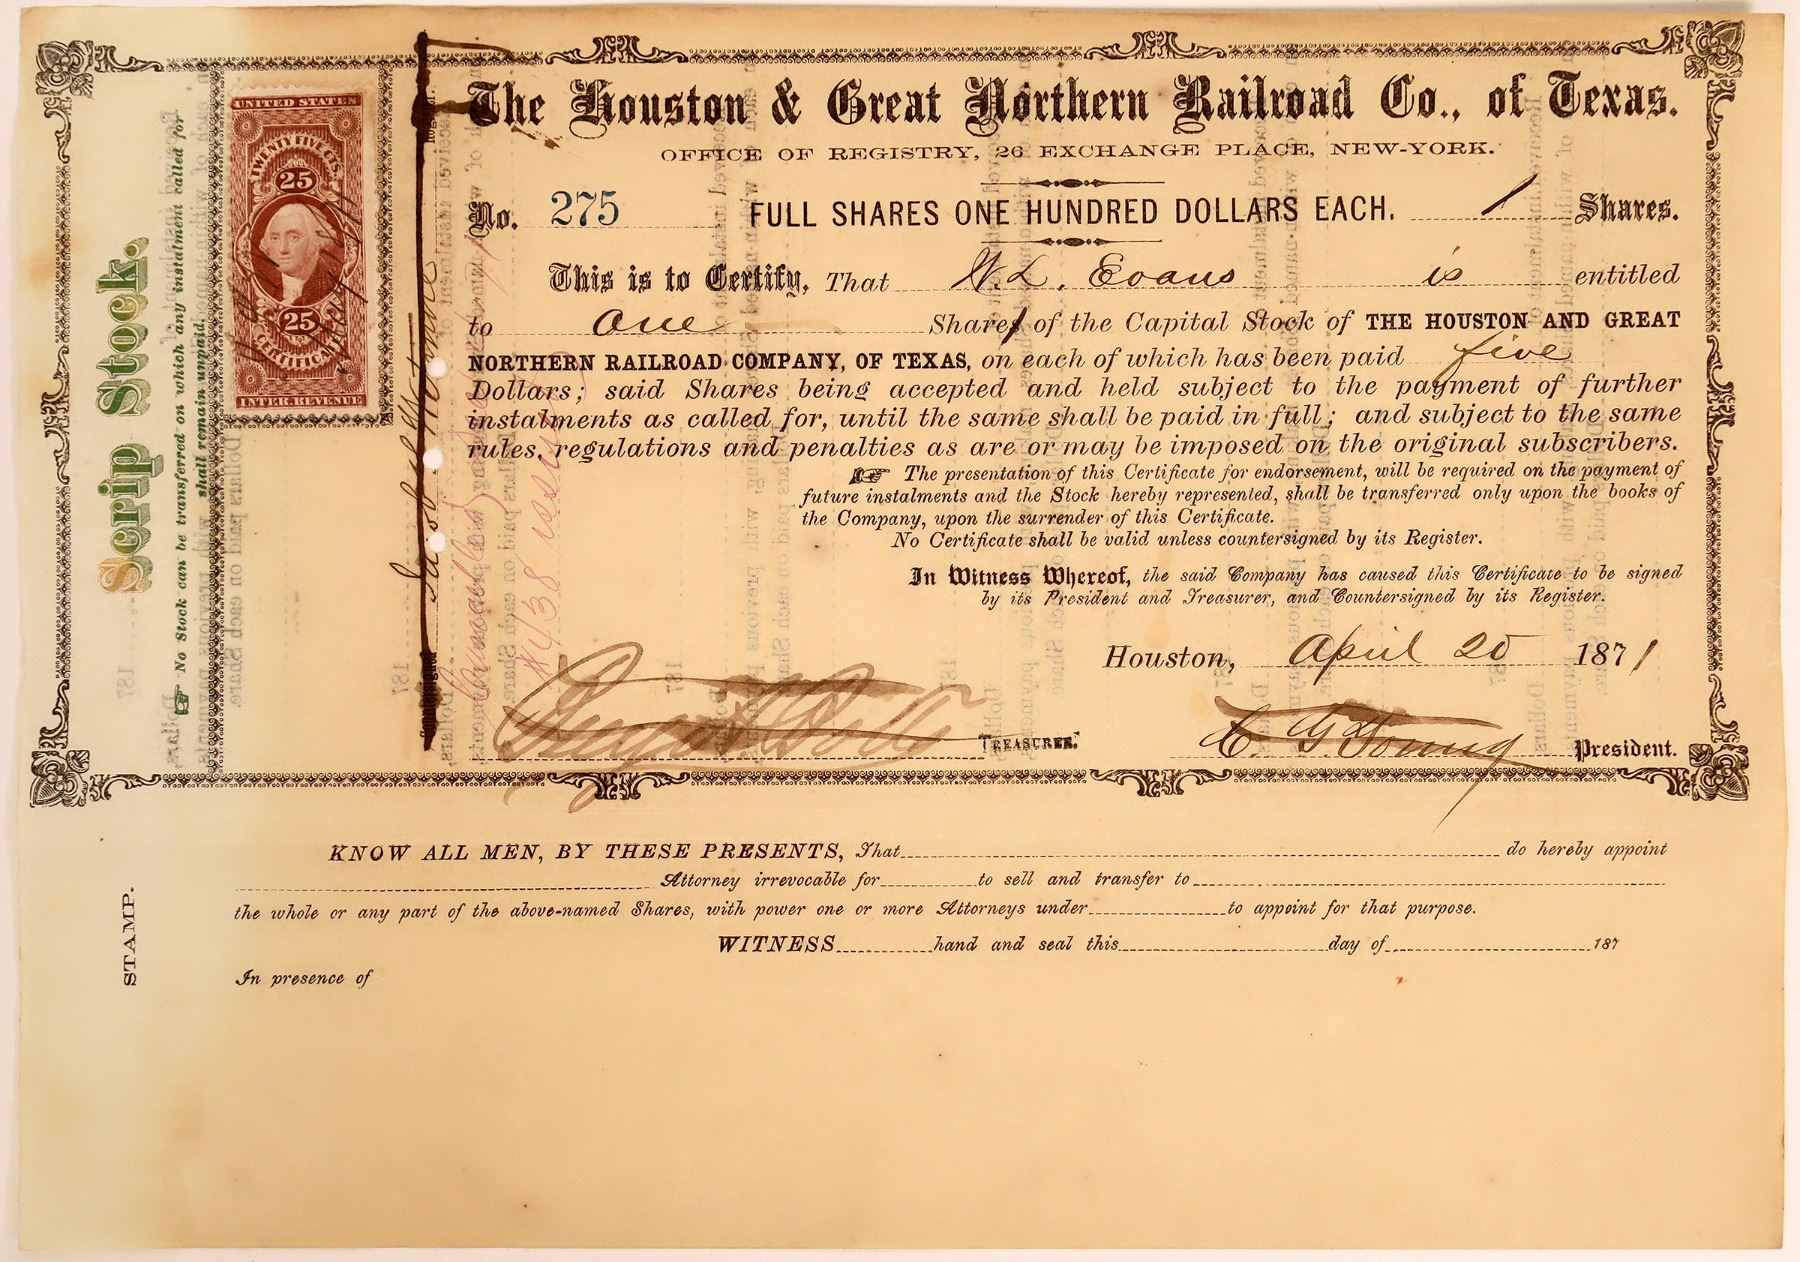 UNITED STATES
TWENTY FIVE CTS.
25
25
CERTIFICATE
INTER. REVENUE
Scrip Stock.
No Stock can be transferred on which any instalment called for
shall remain unpaid.
The Houston & Great Northern Railroad Co., of Texas.
OFFICE OF REGISTRY, 26 EXCHANGE PLACE, NEW-YORK.
No. 275 FULL SHARES ONE HUNDRED DOLLARS EACH. 1 Shares.
This is to Certify, That W. L. Evans is entitled
to One Shares of the Capital Stock of THE HOUSTON AND GREAT
NORTHERN RAILROAD COMPANY, OF TEXAS, on each of which has been paid five
Dollars; said Shares being accepted and held subject to the payment of further
instalments as called for, until the same shall be paid in full; and subject to the same
rules, regulations and penalties as are or may be imposed on the original subscribers.
The presentation of this Certificate for endorsement, will be required on the payment of
future instalments and the Stock hereby represented, shall be transferred only upon the books of
the Company, upon the surrender of this Certificate.
No Certificate shall be valid unless countersigned by its Register.
In Witness Whereof, the said Company has caused this Certificate to be signed
by its President and Treasurer, and Countersigned by its Register.
Houston, April 20 1871
TREASURER.
C. G. Young President.
Cancelled
#438 issued
KNOW ALL MEN, BY THESE PRESENTS, That do hereby appoint
Attorney irrevocable for to sell and transfer to
the whole or any part of the above-named Shares, with power one or more Attorneys under to appoint for that purpose.
WITNESS hand and seal this day of 187
In presence of
STAMP.